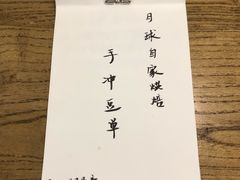 月球自家烘焙
手冲豆单